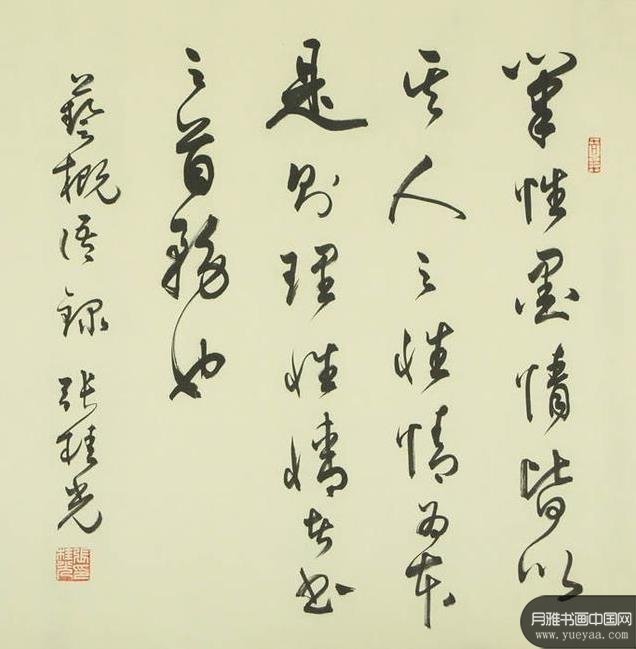 筆性墨情皆以
其人之性情為本
是則理性情者书
之首務也
藝概语録 张桂光
张桂光印
月雅书画中国网
www.yueyaa.com